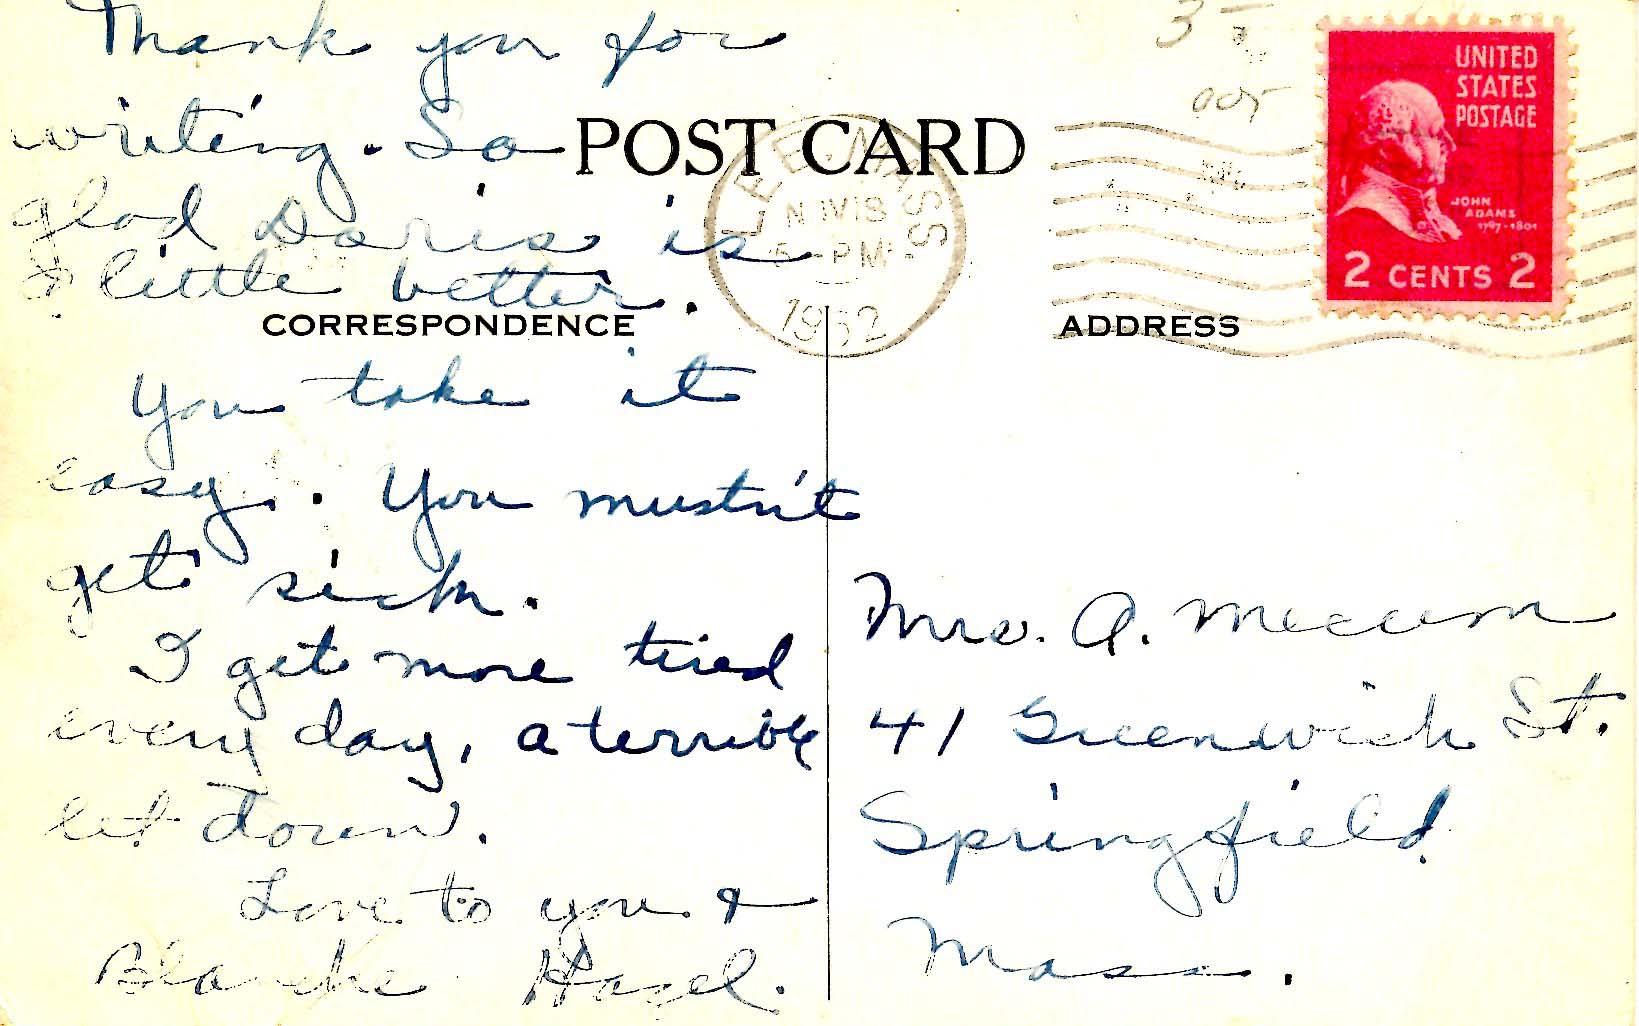 Thank you for
writing. So
glad Doris is
a little better.
You take it
easy. You mustn't
get sick.
I get more tired
every day, a terrible
let down.
Love to you &
Blanche Hazel.
POST CARD
CORRESPONDENCE
ADDRESS
3
LEE, MASS
NOV 18
5 - PM
1952
UNITED
STATES
POSTAGE
JOHN
ADAMS
1797-1801
2 CENTS 2
Mrs. A. Mecum
41 Greenwich St.
Springfield
Mass.